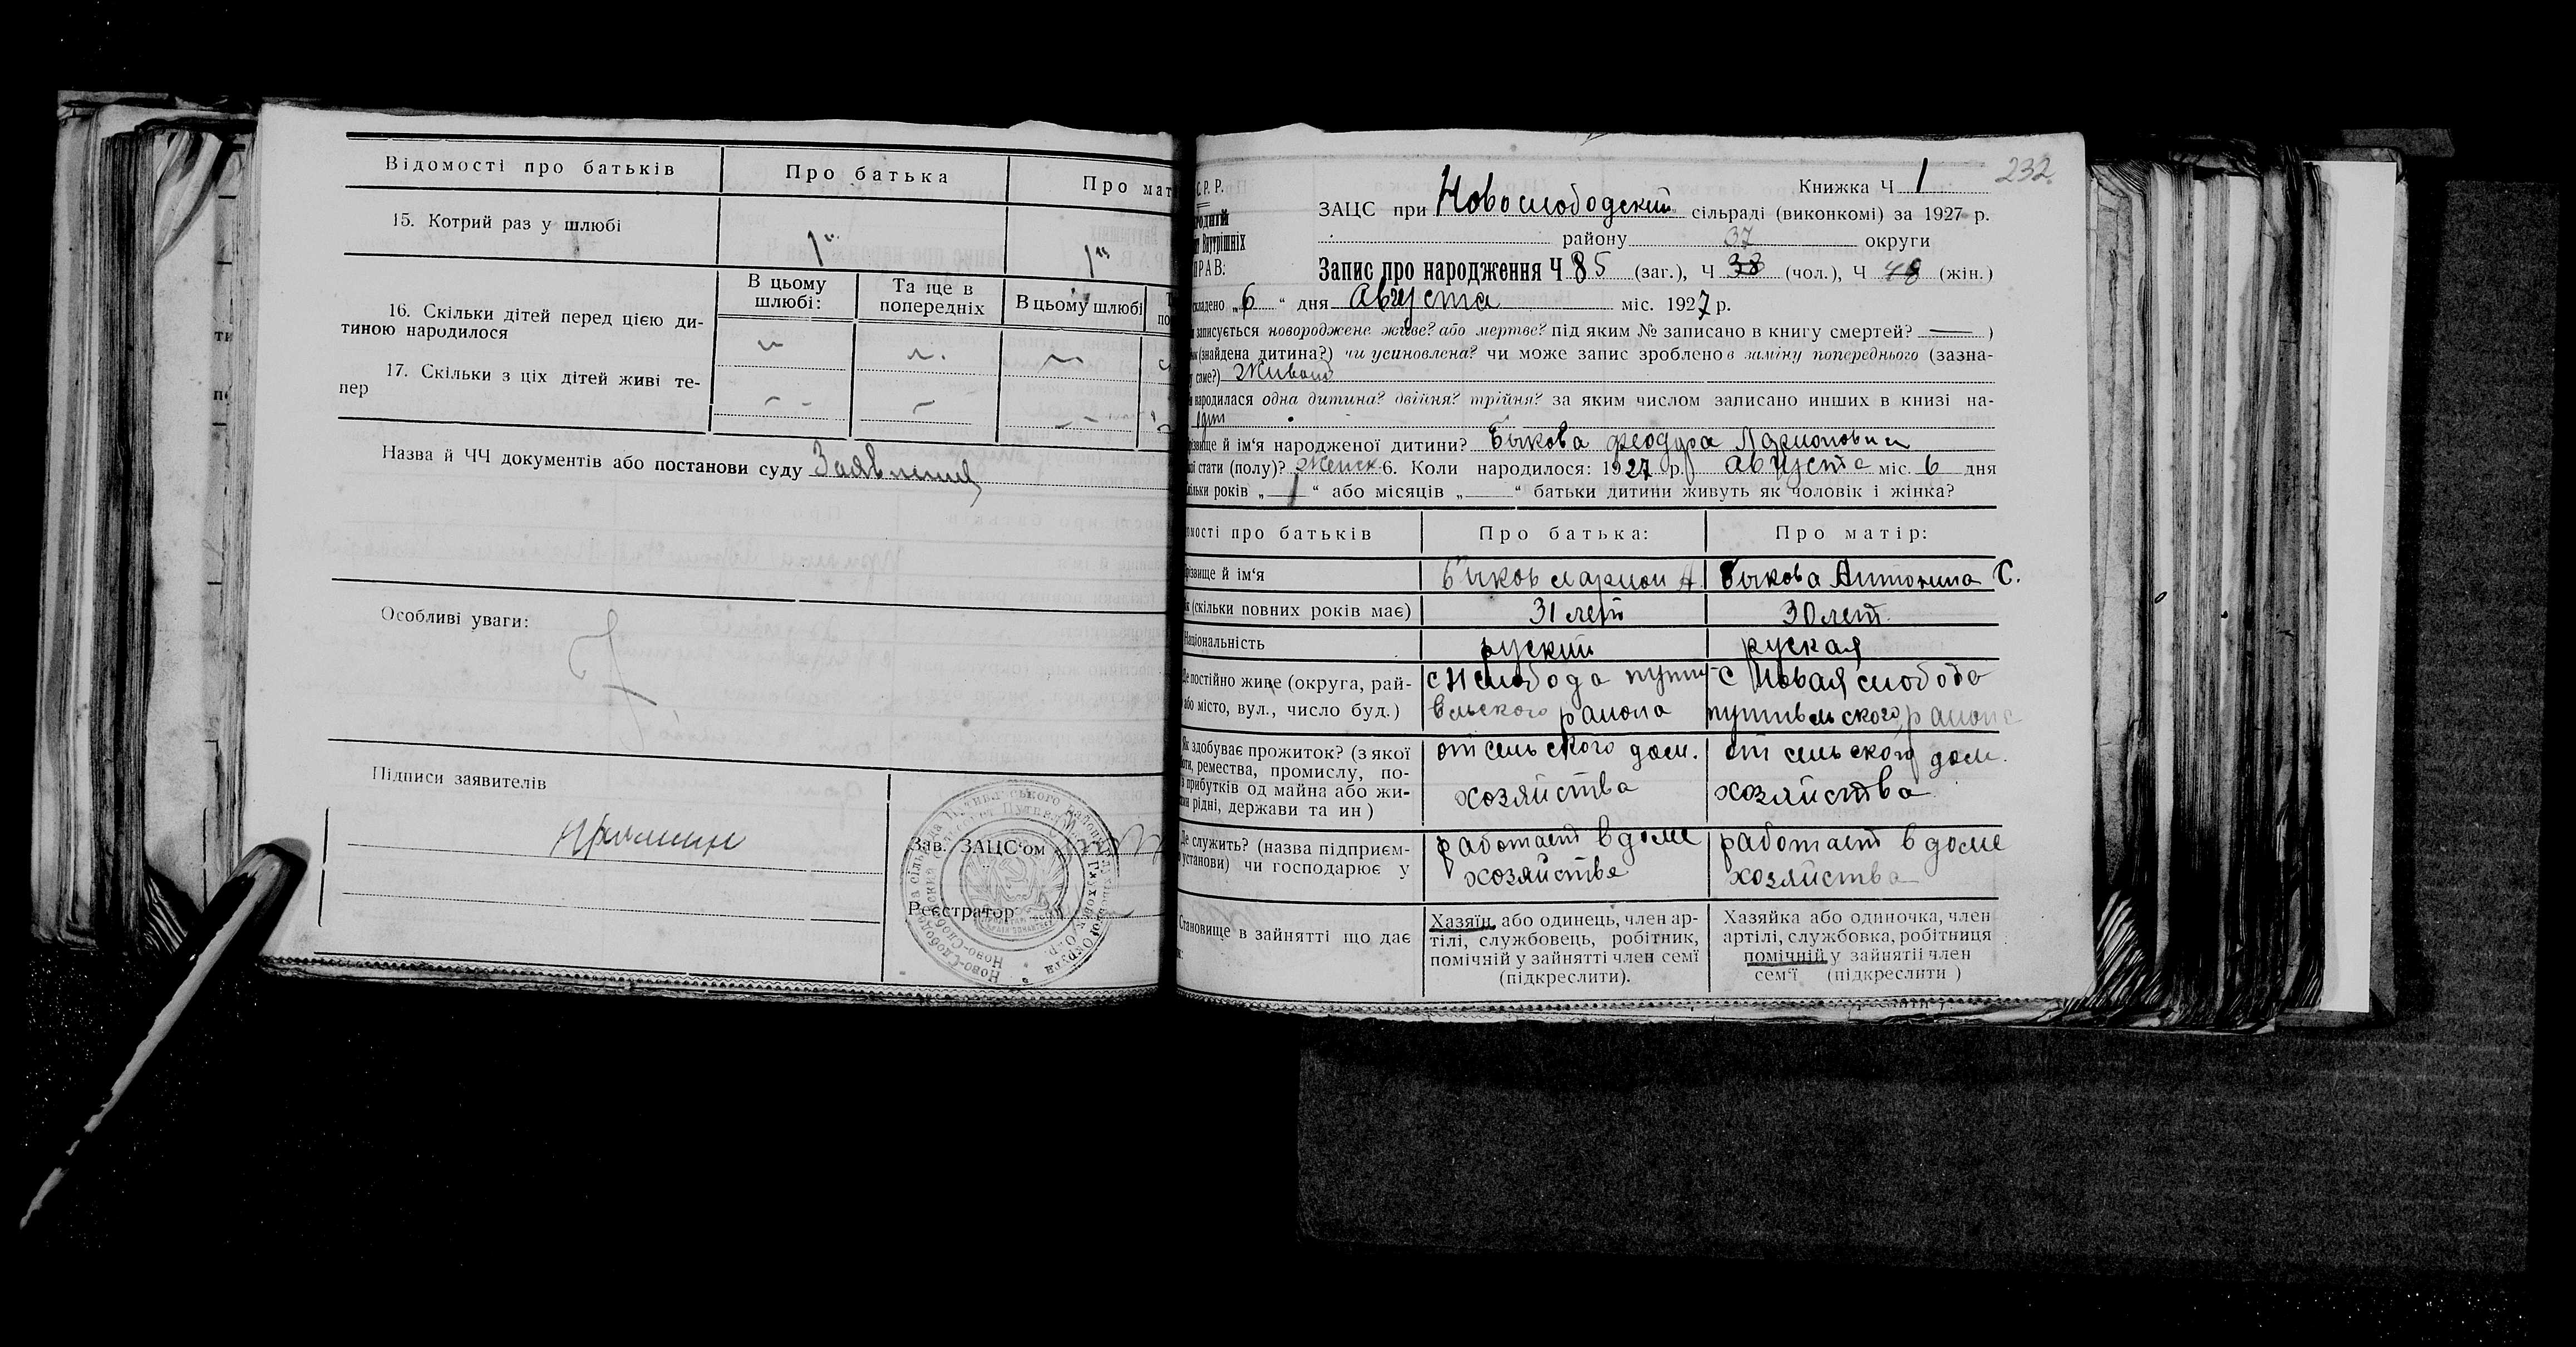 Відомості про батьків
Про батька
Про мат
15. Котрий раз у шлюбі
1й
1й
В цьому шлюбі:
Та ще в попередніх
В цьому шлюбі
16. Скільки дітей перед цією ди-
тиною народилося
17. Скільки з ціх дітей живі те-
пер
Назва й ЧЧ документів або постанови суду
Особливі уваги:
Підписи заявителів
Зав. ЗАЦС'ом
Реєстратор
232
С.Р.Р.
Книжка Ч 1
ЗАЦС при Новослободский сільраді (виконкомі) за 1927 р.
району 37 округи
Запис про народження Ч 85 (заг.), Ч 38 (чол.), Ч 48 (жін.)
складено „6“ дня Августа міс. 1927 р.
записується новороджене живе? або мертве? під яким № записано в книгу смертей? — )
(знайдена дитина?) чи усиновлена? чи може запис зроблено в заміну попереднього (зазна-
народилася одна дитина? двійня? трійня? за яким числом записано инших в книзі на-
й ім'я народженої дитини? Быкова феодура Ларионовна
стати (полу)? женск 6. Коли народилося: 1927 р. Августа міс. 6 дня
років „ “ або місяців „—“ батьки дитини живуть як чоловік і жінка?
про батьків
Про батька:
Про матір:
й ім'я
Быков Ларион А.
Быкова Антонина С.
(скільки повних років має)
31 лет
30 лет
Національність
руский
руская
постійно живе (округа, рай-
або місто, вул., число буд.)
с Н слобода пути
вльского района
с Новая слобода
путивльского района
Як здобуває прожиток? (з якої
ремества, промислу, по-
прибутків од майна або жи-
рідні, держави та ин)
от сельского дом.
хозяйства
от сельского дом.
хозяйства
Де служить? (назва підприєм-
установи) чи господарює у
работает в доме
хозяйстве
работает в доме
хозяйства
Становище в зайнятті що дає
Хазяїн, або одинець, член ар-
тілі, службовець, робітник,
помічній у зайнятті член семї
(підкреслити).
Хазяйка або одиночка, член
артілі, службовка, робітниця
помічній у зайнятії член
сем'ї (підкреслити)